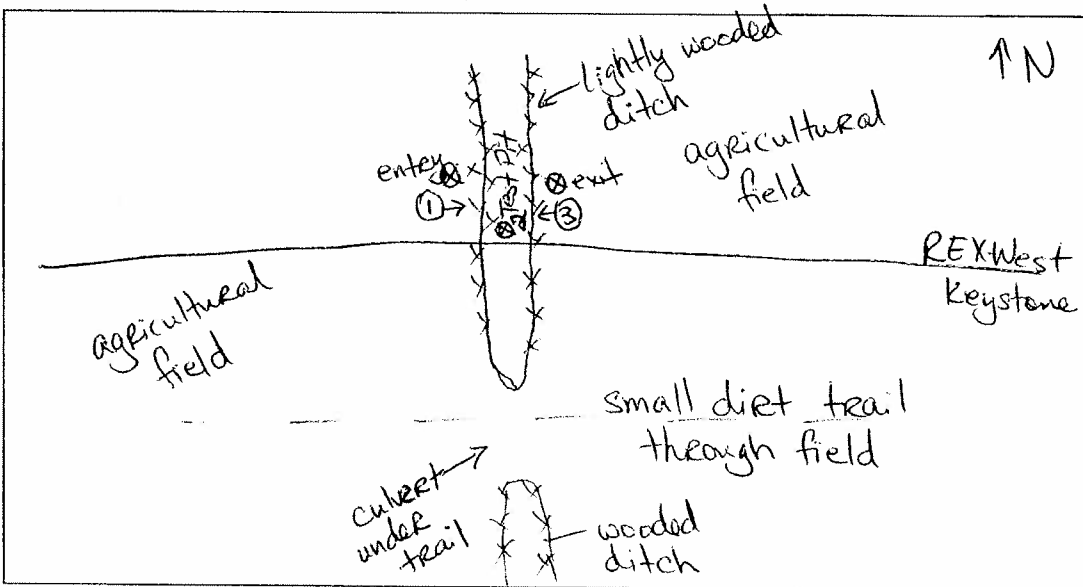 ↑N
lightly wooded
ditch
agricultural
field
entry
exit
①
Test Pit
2
③
REX West
Keystone
agricultural
field
small dirt trail
through field
culvert
under
trail
wooded
ditch